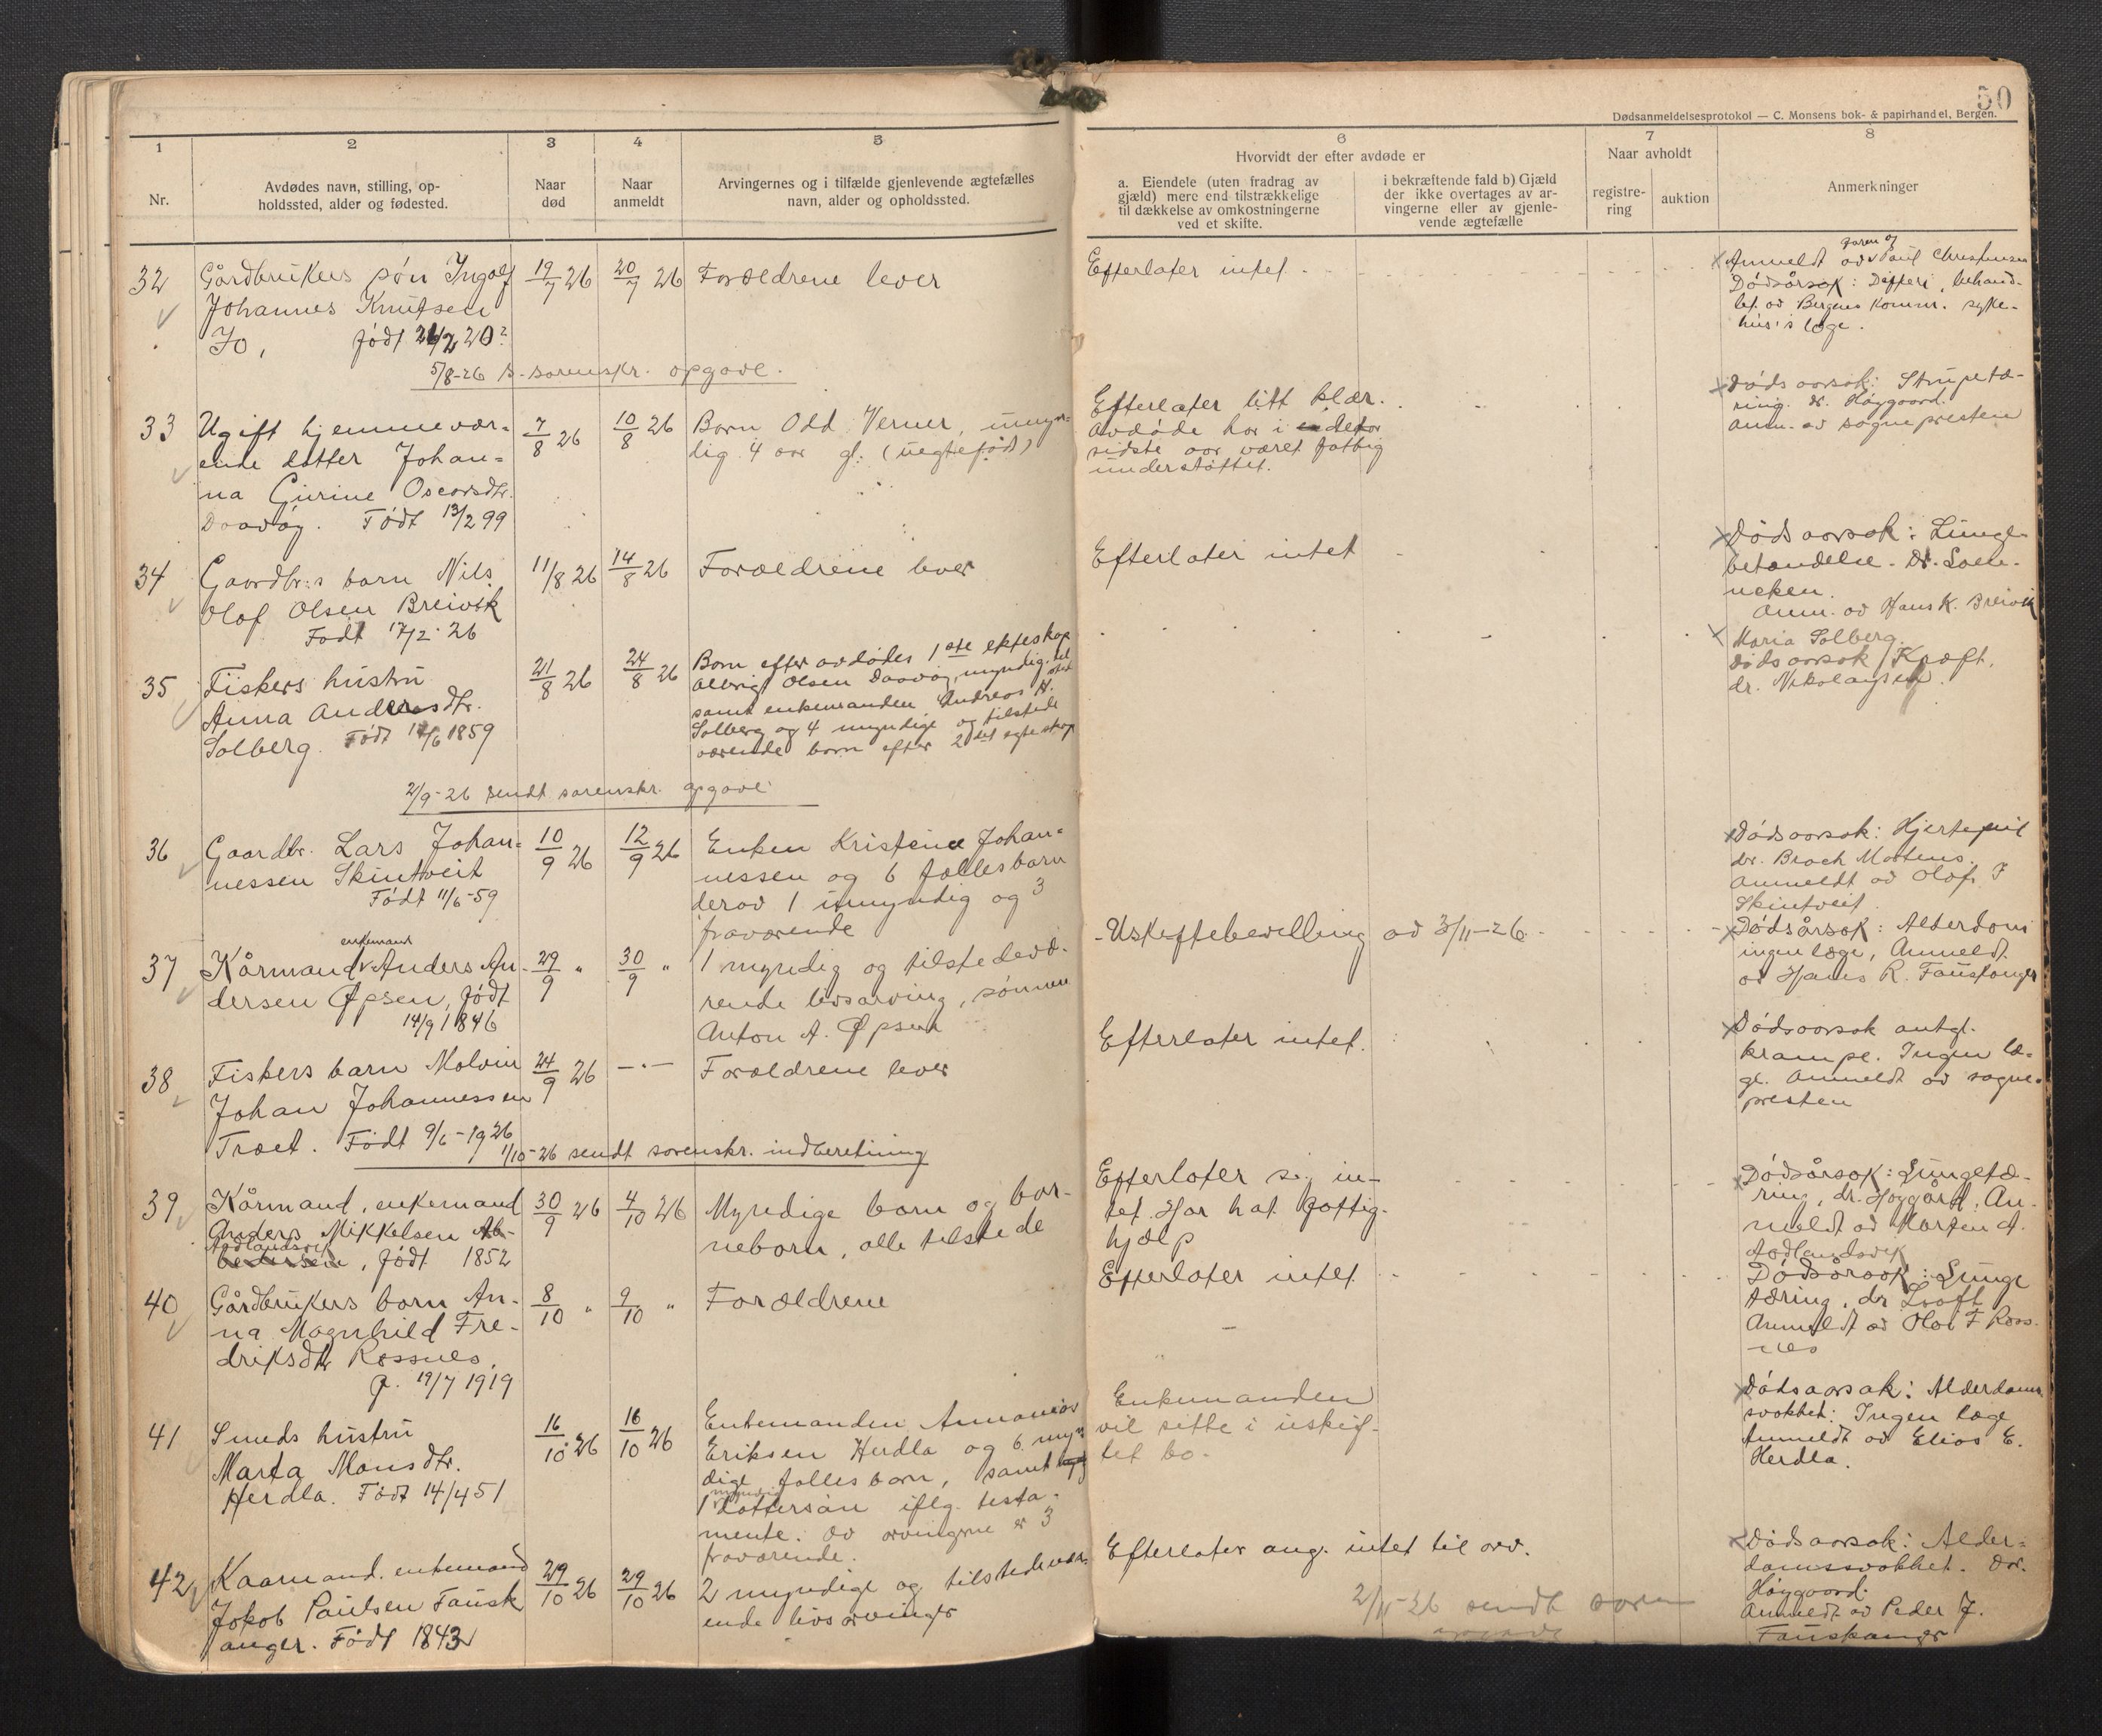 50
Dødsanmeldelsesprotokol — C. Monsens bok- & papirhandel, Bergen.
1
Nr.
2
Avdødes navn, stilling, op-
holdssted, alder og fødested.
3
Naar
død
4
Naar
anmeldt
5
Arvingernes og i tilfælde gjenlevende ægtefælles
navn, alder og opholdssted.
6
Hvorvidt der efter avdøde er
a. Eiendele (uten fradrag av
gjæld) mere end tilstrækkelige
til dækkelse av omkostningerne
ved et skifte.
i bekræftende fald b) Gjæld
der ikke overtages av ar-
vingerne eller av gjenle-
vende ægtefælle
7
Naar avholdt
registre-
ring
auktion
8
Anmerkninger
32
Gårdbrukers søn Ingolf
Johannes Knutsen
Jo, født 24/2 20?
19/7 26
20/7 26
Forældrene lever
Efterlater intet
faren og
Anmeldt av Paul Christensen
Dødsårsak: Difteri, behand-
let av Bergens komm. syke-
hus's læge.
5/8-26 s. sorenskr. opgave.
33
Ugift hjemmevær-
ende datter Johan-
na Gurine Oscarsdtr.
Daavøy. Født 13/2 99
7/8 26
10/8 26
Barn Odd Verner, umyn-
dig 4 aar gl. (uegtefødt)
Efterlater litt klær.
Avdøde har i
sidste aar været fattig
understøttet.
Dødsaarsak: Strupetæ-
ring. dr. Høygaard.
Anm. av sognepresten
34
Gaardbr:s barn Nils
Olaf Olsen Breivik
Født 17/2 26
11/8 26
14/8 26
Forældrene lever
Efterlater intet
Dødsaarsak: Lunge-
betændelse. Dr. Loen-
neken.
Anm. av Hans K. Breivik
35
Fiskers hustru
Anna Andersdtr.
Solberg. Født 17/6 1859
21/8 26
24/8 26
Barn efter avdødes 1ste ekteskap
Albrigt Olsen Daavøy, myndig, tilsted
samt enkemanden Andreas H.
Solberg og 4 myndige og tilstede
værende barn efter 2det egteskap
Maria Solberg.
Dødsaarsak Kræft.
dr. Nikolaysen.
2/9-26 sendt sorenskr. opgave
36
Gaardbr. Lars Johan-
nessen Skintveit
Født 11/6-59
10/9 26
12/9 26
Enken Kristine Johan-
nessen og 6 fællesbarn
derav 1 umyndig og 3
fraværende
Dødsaarsak: Hjertefeil
dr. Broch Mortens.
Anmeldt av Olaf J
Skintveit.
37
enkemand
Kårmand Anders An-
dersen Øpsen, født
14/9 1846
29/9 "
30/9 "
1 myndig og tilstedevæ-
rende livsarving, sønnen
Anton A. Øpsen
-Uskiftebevilling av 3/11-26
Dødsårsak: Alderdom
ingen læge, Anmeldt
av Hans R. Fauskanger
38
Fiskers barn Malvin
Johan Johannessen
Træet. Født 9/6-1926
24/9 26
—·—
Forældrene lever
Efterlater intet.
Dødsaarsak antgl.
krampe. Ingen læ-
ge. Anmeldt av sogne-
presten
1/10-26 sendt sorenskr. indberetning
39
Kårmand, enkemand
Anders Mikkelsen
Aadlandsvik
, født 1852
30/9 26
4/10 26
Myndige barn og bar-
nebarn, alle tilstede
Efterlater sig in-
tet. Har hat fattig-
hjælp
Dødsårsak: Lungetæ-
ring, dr. Høygård. An-
meldt av Morten A.
Aadlandsvik
40
Gårdbrukers barn An-
na Magnhild Fre-
driksdtr Rossnes,
f. 19/7 1919
8/10 "
9/10 "
Forældrene
Efterlater intet
Dødsårsak: Lunge
tæring, dr Looft
Anmeldt av Olai F Ross-
nes
41
Smeds hustru
Marta Monsdtr.
Herdla. Født 14/4 51
16/10 26
16/10 26
Enkemanden Annanias
Eriksen Herdla og 6 myn-
dige fællesbarn, samt
myndig
1 dattersøn iflg. testa-
mente. Av arvingerne er 3
fraværende.
Enkemanden
vil sitte i uskif-
tet bo.
Dødsaarsak: Alderdoms
svakhet: Ingen læge
Anmeldt av Elias E.
Herdla.
42
Kaarmand. enkemand
Jakob Paulsen Fausk
anger. Født 1843
29/10 26
29/10 26
2 myndige og tilstedevær-
ende livsarvinger
Efterlater ang. intet til arv.
Dødsaarsak: Alder-
domssvakhet. Dr.
Høygaard.
Anmeldt av Peder J.
Fauskanger
2/11-26 sendt soren
opgave